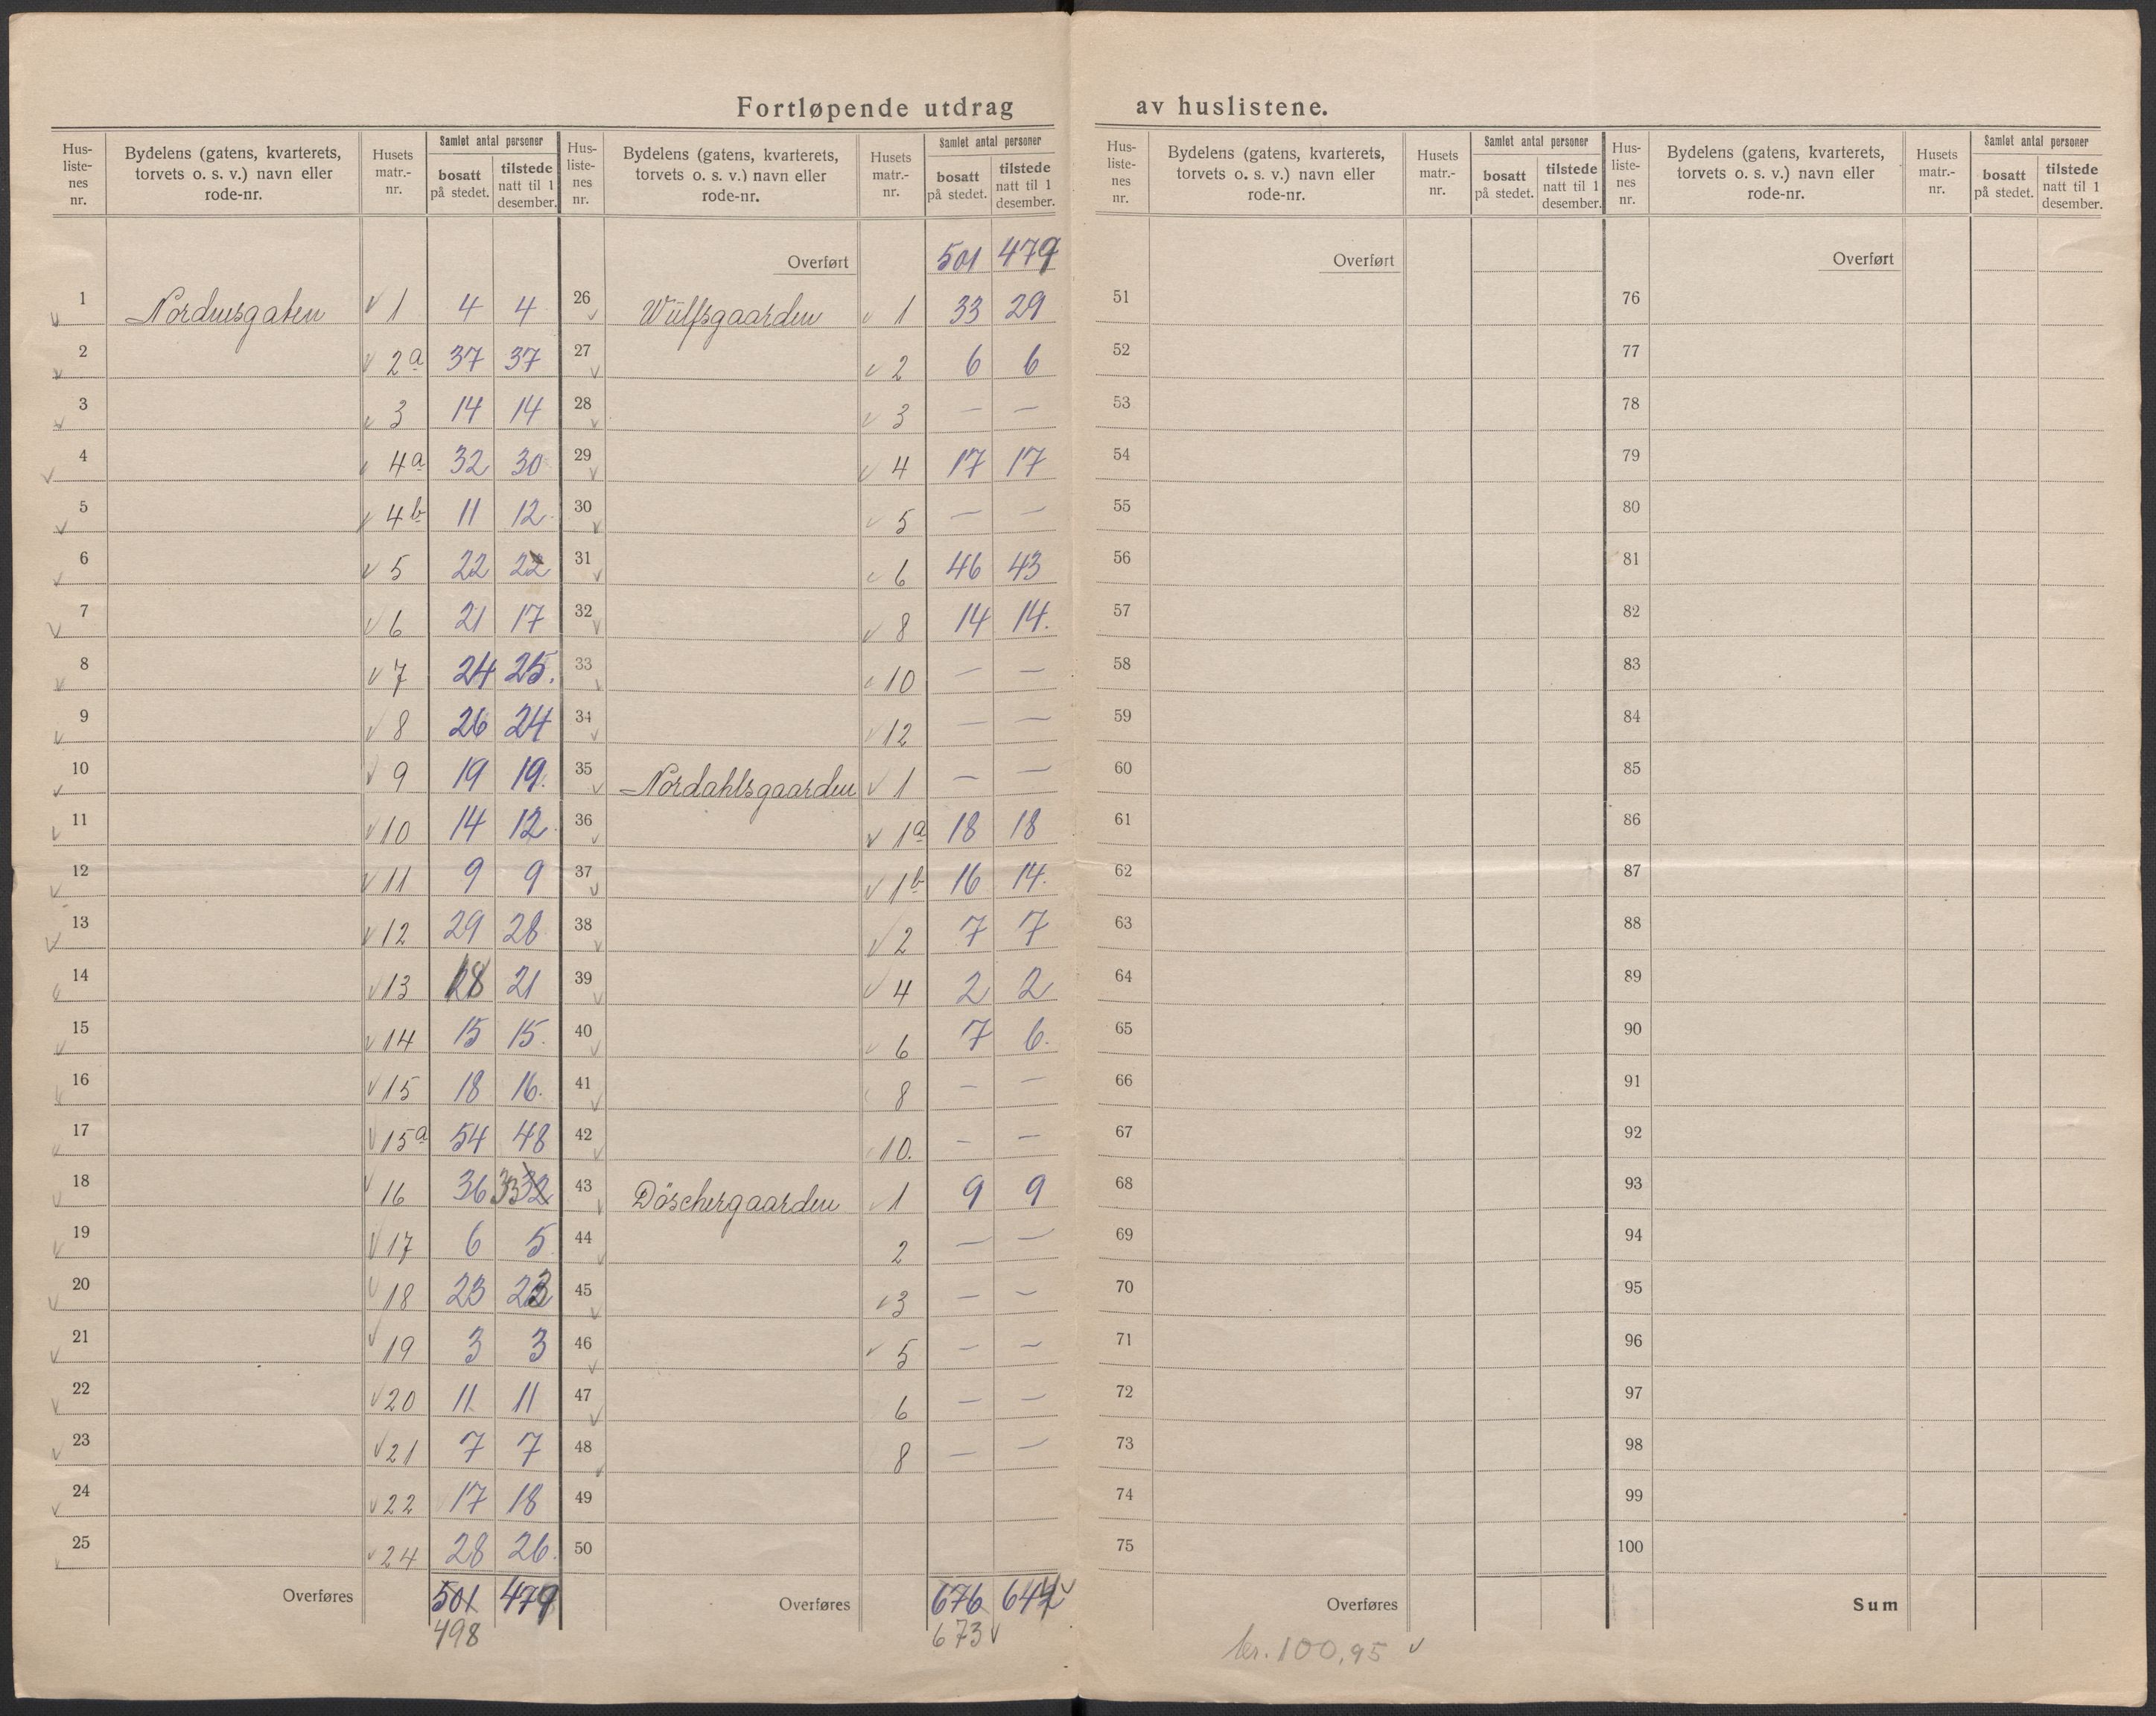 Fortløpende utdrag av huslistene.
Hus-liste-nes nr. | Bydelens (gatens, kvarterets, torvets o. s. v.) navn eller rode-nr. | Husets matr.-nr. | Samlet antal personer bosatt på stedet. | tilstede natt til 1 desember.
1 Nordnesgaten 1 4 4
2 2a 37 37
3 3 14 14
4 4a 32 30
5 4b 11 12
6 5 22 22
7 6 21 17
8 7 24 25.
9 8 26 24
10 9 19 19.
11 10 14 12.
12 11 9 9
13 12 29 28
14 13 18 21
15 14 15 15.
16 15 18 16.
17 15a 54 48
18 16 36 33 32
19 17 6 5
20 18 23 23
21 19 3 3
22 20 11 11
23 21 7 7
24 22 17 18
25 24 28 26.
Overføres 501 479
498
Hus-liste-nes nr. | Bydelens (gatens, kvarterets, torvets o. s. v.) navn eller rode-nr. | Husets matr.-nr. | Samlet antal personer bosatt på stedet. | tilstede natt til 1 desember.
Overført 501 479
26 Wülfsgaarden 1 33 29
27 2 6 6
28 3 — —
29 4 17 17
30 5 — —
31 6 46 43
32 8 14 14.
33 10 — —
34 12 — —
35 Nordahlsgaarden 1 — —
36 1a 18 18
37 1b 16 14.
38 2 7 7
39 4 2 2
40 6 7 6.
41 8 — —
42 10. — —
43 Döschergaarden 1 9 9
44 2 — —
45 3 — —
46 5 — —
47 6 — —
48 8 — —
49
50
Overføres 676 644
673
Hus-liste-nes nr. | Bydelens (gatens, kvarterets, torvets o. s. v.) navn eller rode-nr. | Husets matr.-nr. | Samlet antal personer bosatt på stedet. | tilstede natt til 1 desember.
Overført
51
52
53
54
55
56
57
58
59
60
61
62
63
64
65
66
67
68
69
70
71
72
73
74
75
Overføres
kr. 100,95
Hus-liste-nes nr. | Bydelens (gatens, kvarterets, torvets o. s. v.) navn eller rode-nr. | Husets matr.-nr. | Samlet antal personer bosatt på stedet. | tilstede natt til 1 desember.
Overført
76
77
78
79
80
81
82
83
84
85
86
87
88
89
90
91
92
93
94
95
96
97
98
99
100
Sum